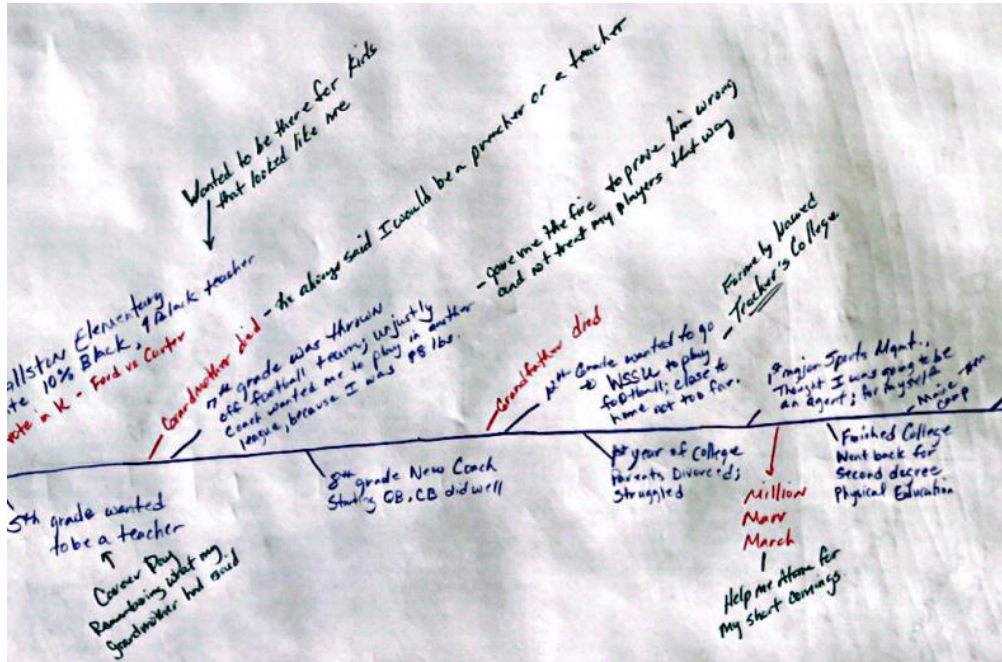 Wanted to be there for kids
that looked like me
Elementary
10% Black, 1 Black teacher
in K - Ford vs Carter
Grandmother died - he always said I would be a preacher or a teacher
7th grade was thrown
off football team; unjustly
Coach wanted me to play in another
league, because I was 98 lbs.
- gave me the fire to prove him wrong
and not treat my players that way
Grandfather died
12th Grade wanted to go
to WSSU to play
football; close to
home not too far.
Formerly Named
Teacher's College
1st major Sports Mgmt..
Thought I was going to be
an agent; for myself a
camp
5th grade wanted
to be a teacher
Career Day
what my
grandmother had said
8th grade New Coach
Starting QB, CB did well
1st year of College
Parents Divorced;
Struggled
Million
Man
March
Help me Atone for
my short comings
Finished College
Went back for
Second degree
Physical Education